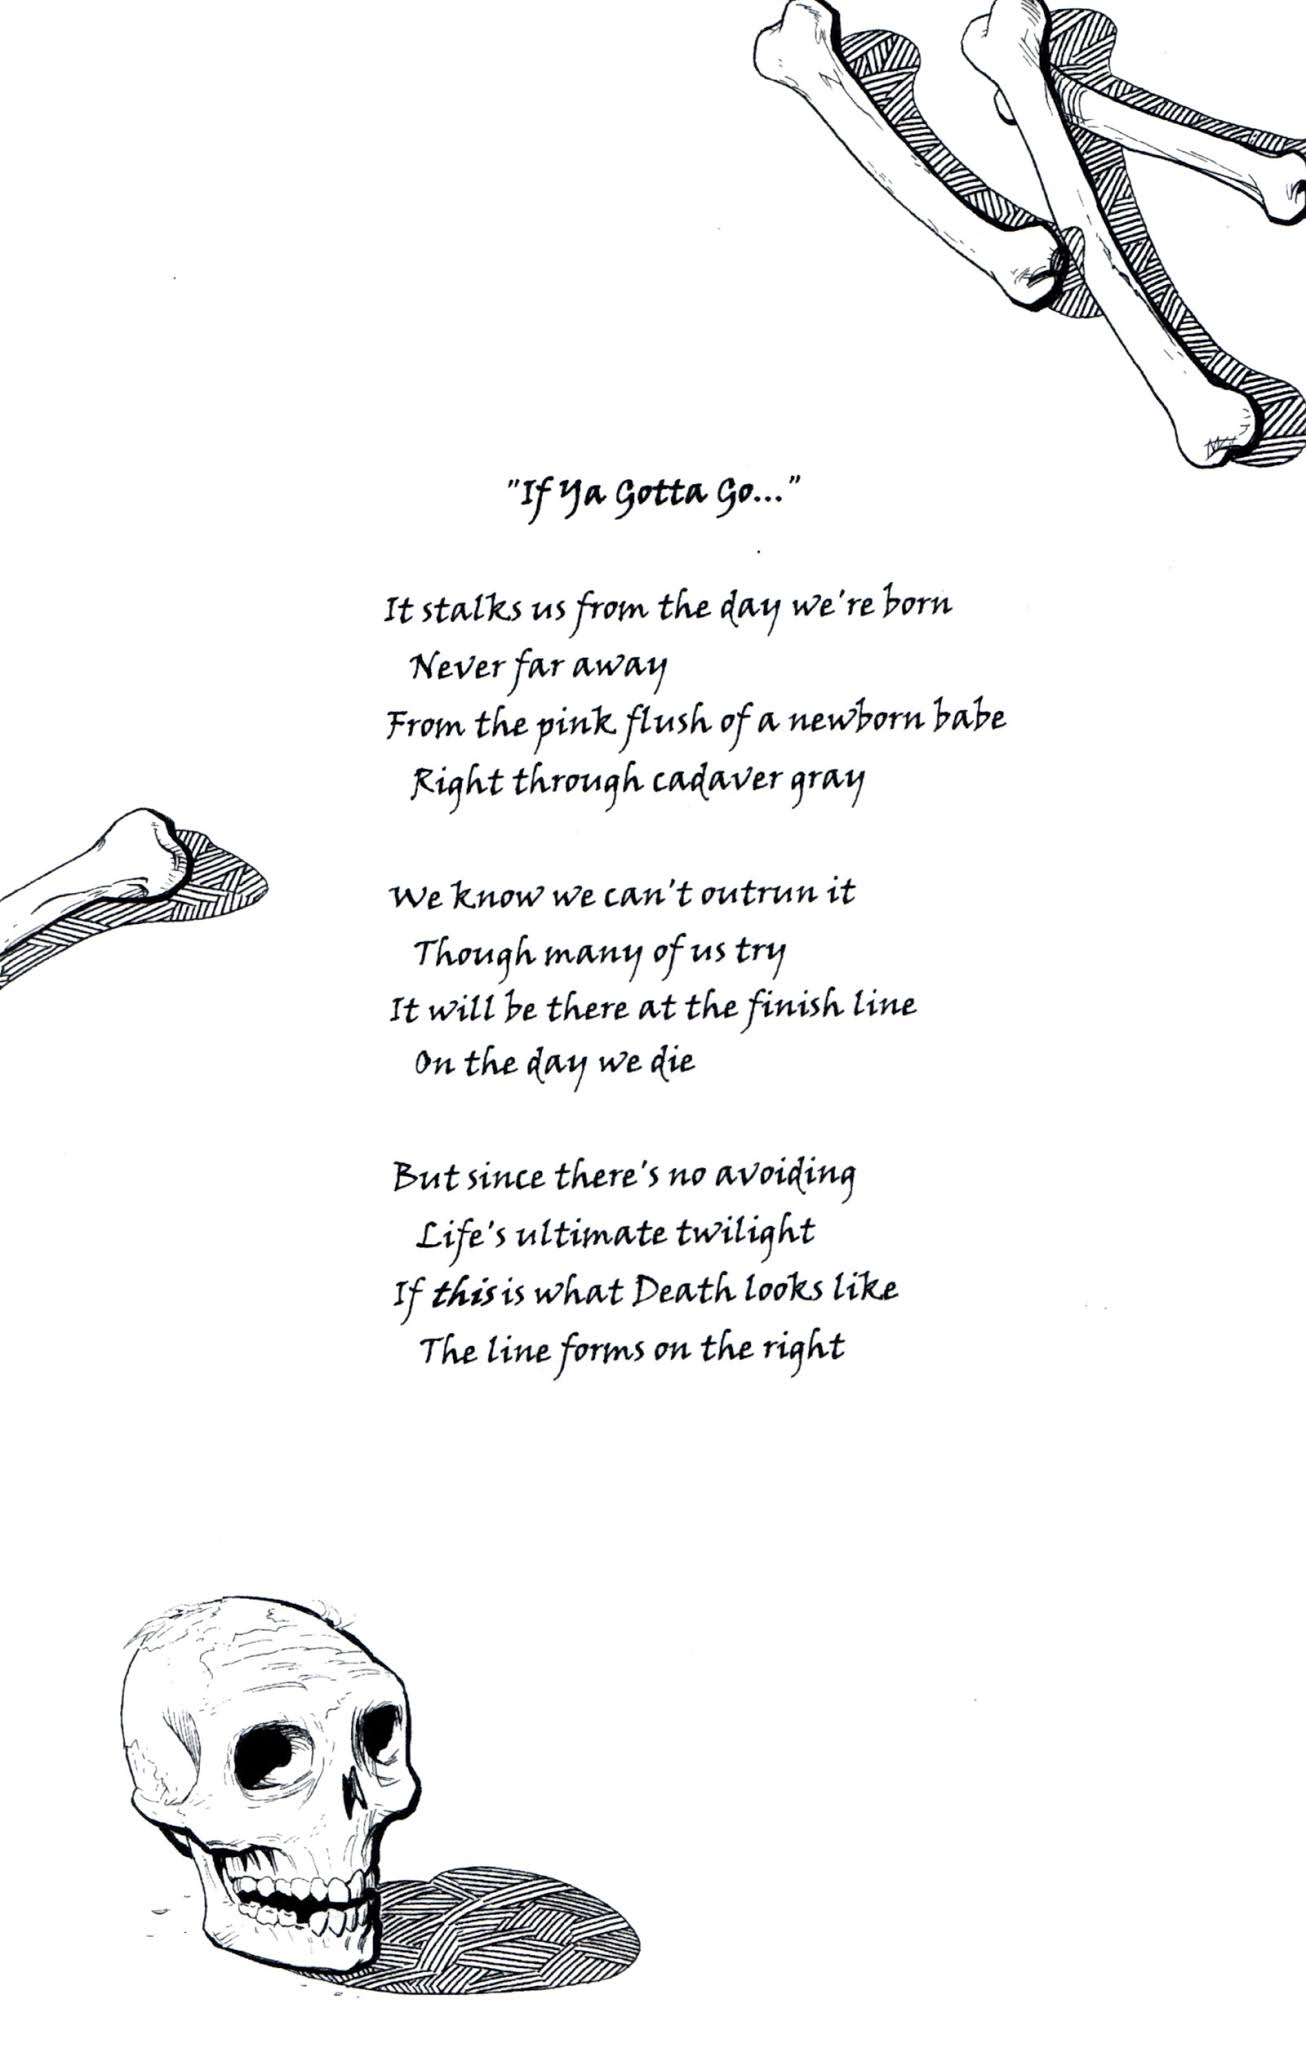 "If Ya Gotta Go..."
It stalks us from the day we're born
Never far away
From the pink flush of a newborn babe
Right through cadaver gray
We know we can't outrun it
Though many of us try
It will be there at the finish line
On the day we die
But since there's no avoiding
Life's ultimate twilight
If this is what Death looks like
The line forms on the right